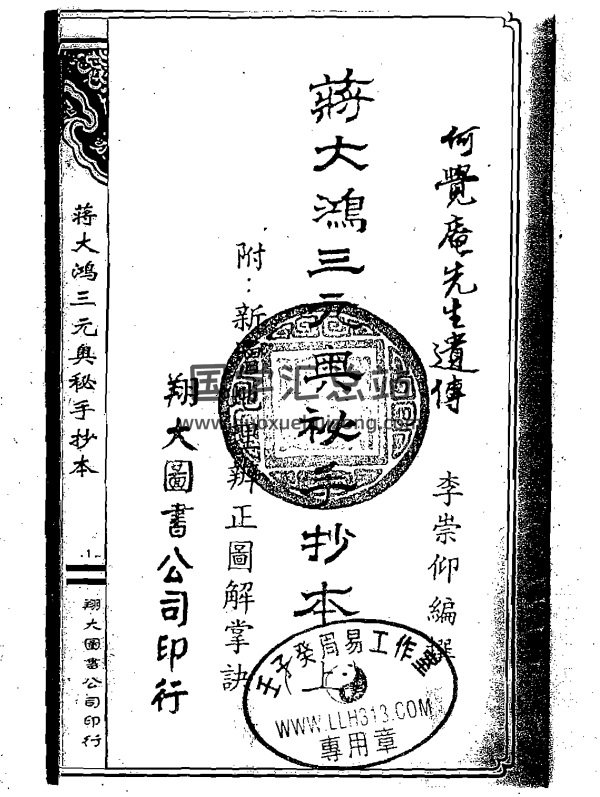 何覺庵先生遺傳
李崇仰編撰
蔣大鴻三元奧秘手抄本
上
附：新 地理辨正圖解掌訣
翔大圖書公司印行
蔣大鴻三元奧秘手抄本
·1·
翔大圖書公司印行
国学汇总站
壬子癸周易工作室
WWW.LLH313.COM
專用章